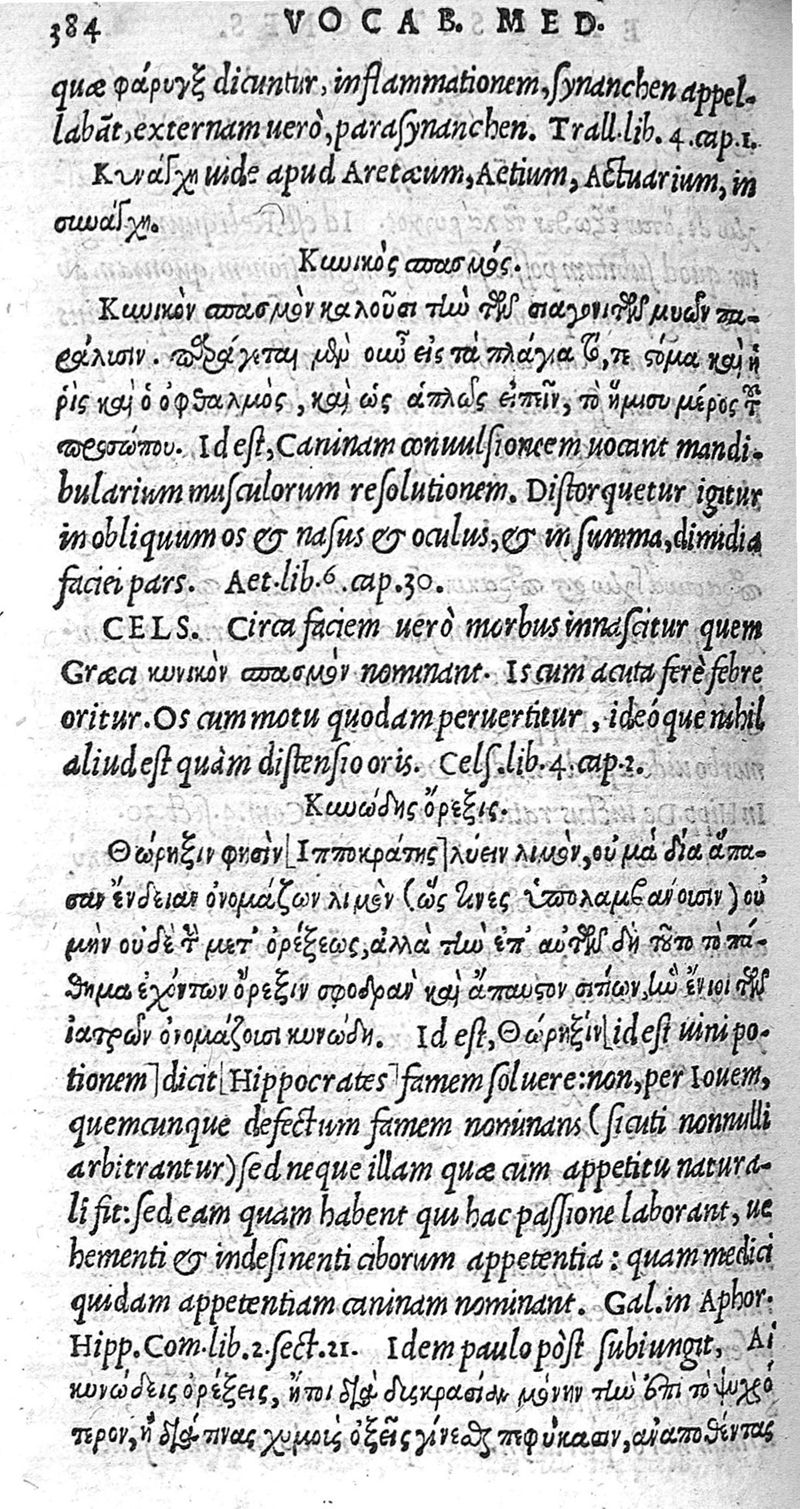 384 VOCAB. MED.
quæ φάρυγξ dicuntur, inflammationem, synanchen appel-
labāt, externam uerò, parasynanchen. Trall. lib. 4. cap. 1.
Κυνάγχη uide apud Aretæum, Aetium, Actuarium, in
συνάγχη.
Κυνικὸς σπασμός.
Κυνικὸν σπασμὸν καλοῦσι τὴν τῆς σιαγονίτης μυῶν πα-
ράλισιν. παράγεται μὲν οὖν εἰς τὰ πλάγια τό, τε στόμα καὶ ἡ
ῥὶς καὶ ὁ ὀφθαλμὸς, καὶ ὡς ἁπλῶς εἰπεῖν, τὸ ἥμισυ μέρος τοῦ
προσώπου. Id est, Caninam conuulsioneem uocant mandi-
bularium musculorum resolutionem. Distorquetur igitur
in obliquum os & nasus & oculus, & in summa, dimidia
faciei pars. Aet. lib. 6. cap. 30.
CELS. Circa faciem uerò morbus innascitur quem
Græci κυνικὸν σπασμὸν nominant. Is cum acuta ferè febre
oritur. Os cum motu quodam peruertitur, ideóque nihil
aliud est quàm distensio oris. Cels. lib. 4. cap. 2.
Κυνώδης ὄρεξις.
Θώρηξιν φησὶν [Ιπποκράτης] λύειν λιμὸν, οὐ μὰ δία ἅπα-
σαν ἔνδειαν ὀνομάζων λιμὸν (ὥς τινες ὑπολαμβάνουσιν) οὐ
μὴν οὐδὲ τὴν μετ' ὀρέξεως, ἀλλὰ τὴν ἐπ' αὐτῆς δὴ τοῦτο τὸ πά-
θημα ἐχόντων ὄρεξιν σφοδρὰν καὶ ἄπαυστον σιτίων, ἣν ἔνιοι τῶν
ἰατρῶν ὀνομάζουσι κυνώδη. Id est, Θώρηξιν [id est uini po-
tionem] dicit [Hippocrates] famem soluere: non, per Iouem,
quemcunque defectum famem nominans (sicuti nonnulli
arbitrantur) sed neque illam quæ cum appetitu natura-
li fit: sed eam quam habent qui hac passione laborant, ue
hementi & indesinenti ciborum appetentia: quam medici
quidam appetentiam caninam nominant. Gal. in Aphor.
Hipp. Com. lib. 2. sect. 21. Idem paulo pòst subiungit, Αἱ
κυνώδεις ὀρέξεις, ἤτοι διὰ δυσκρασίαν μόνην τὴν ἐπὶ τὸ ψυχρό
τερον, ἢ διά τινας χυμοὺς ὀξεῖς γίνεσθαι πεφύκασιν, ἀναποθέντας